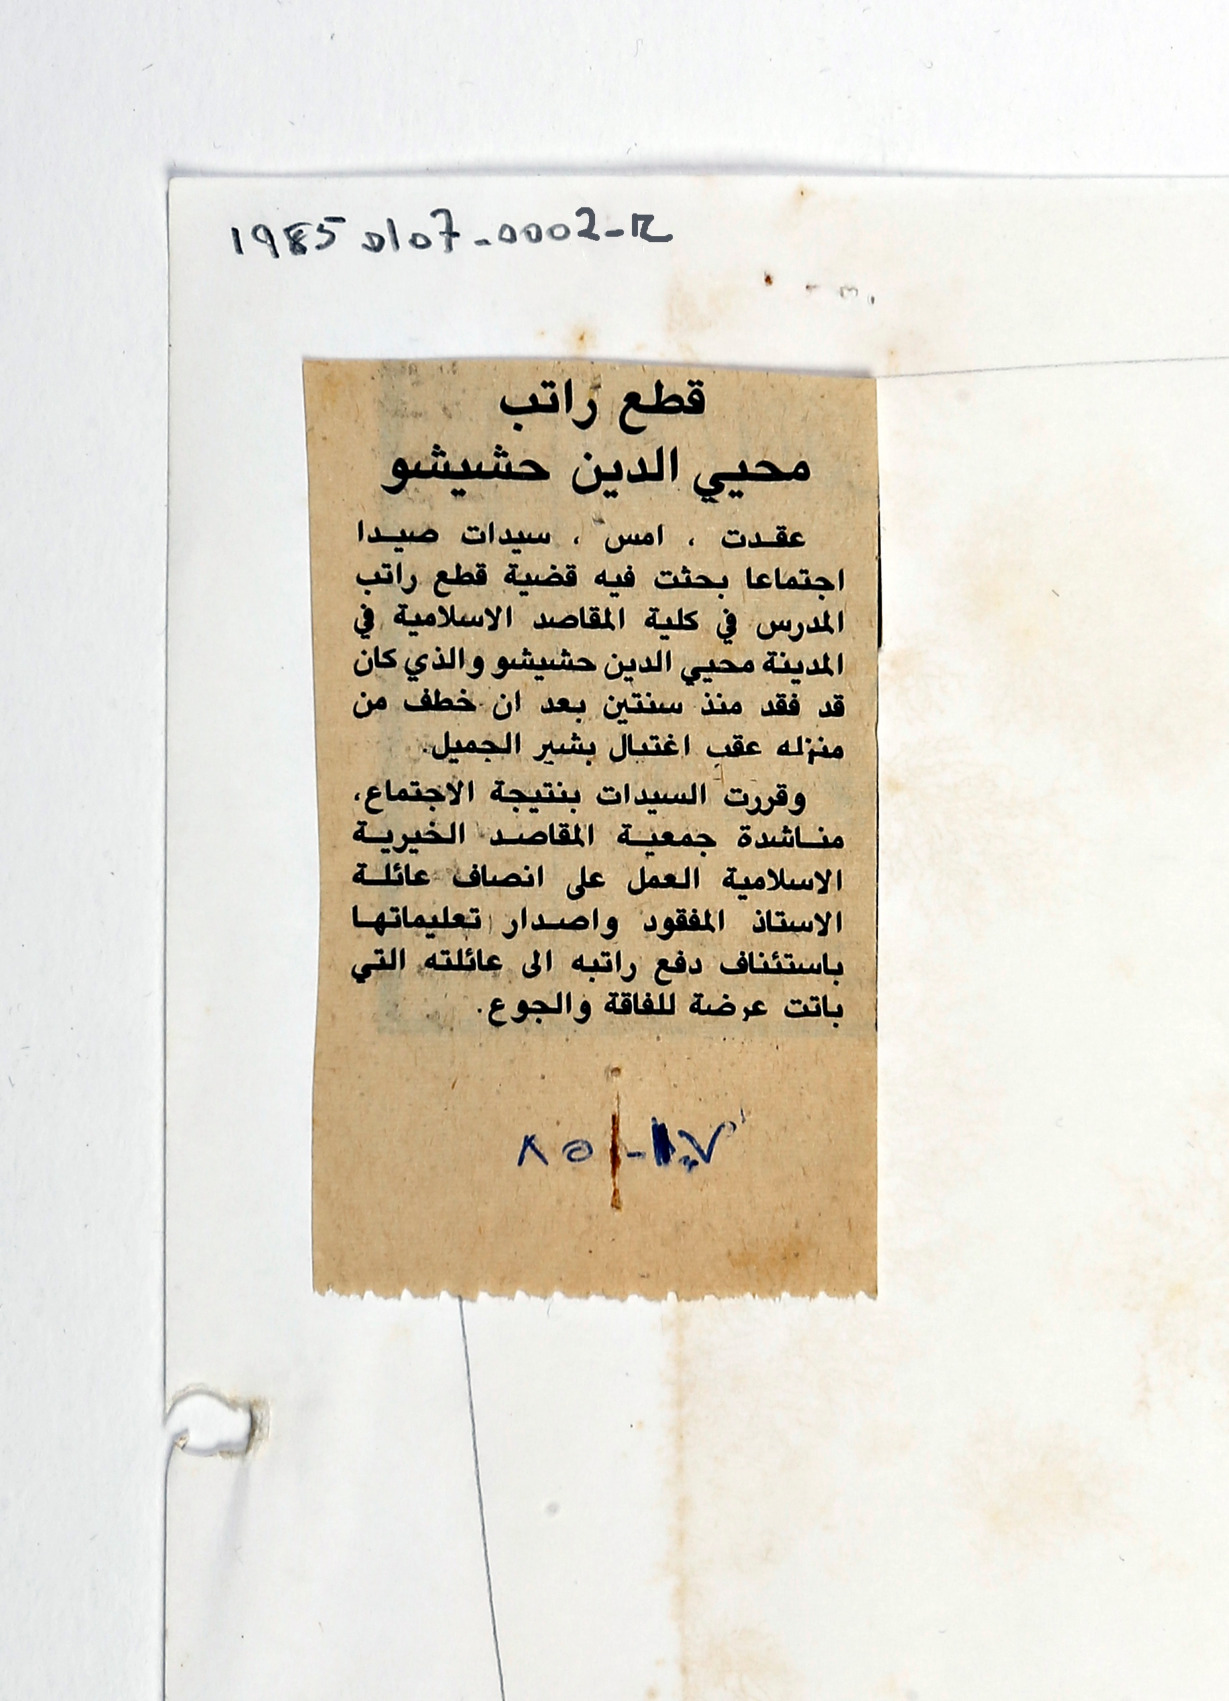 1985 0107-0002-R
قطع راتب
محيي الدين حشيشو
عقدت ، امس ، سيدات صيدا
اجتماعا بحثت فيه قضية قطع راتب
المدرس في كلية المقاصد الاسلامية في
المدينة محيي الدين حشيشو والذي كان
قد فقد منذ سنتين بعد ان خطف من
منزله عقب اغتيال بشير الجميل.
وقررت السيدات بنتيجة الاجتماع،
مناشدة جمعية المقاصد الخيرية
الاسلامية العمل على انصاف عائلة
الاستاذ المفقود واصدار تعليماتها
باستئناف دفع راتبه الى عائلته التي
باتت عرضة للفاقة والجوع.